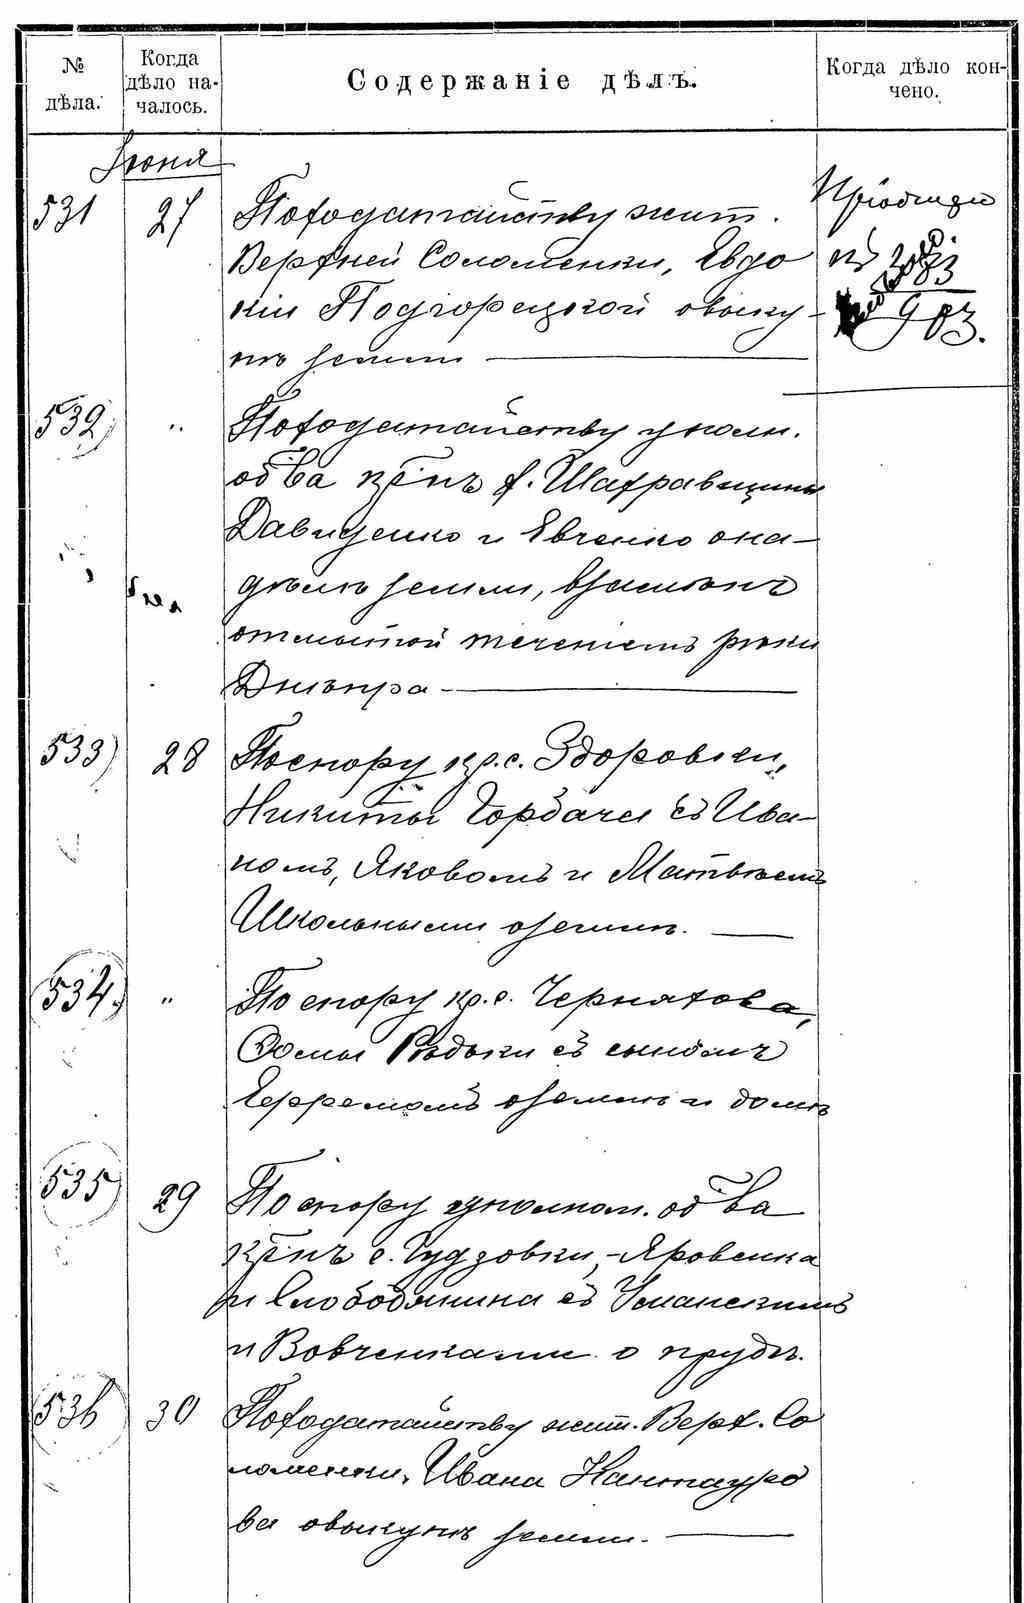 № дѣла.
Когда дѣло на-
чалось.
Содержаніе дѣлъ.
Когда дѣло кон-
чено.
Іюня
531
27
По ходатайству жит.
Верхней Соломенки, Евдо
кіи Подгорецкой о выку-
пѣ земли
Пріобщен
къ
903.
532
"
По ходатайству уполн.
об-ва кр-нъ д. Шатравщины
Давиденко и Евченко о на-
дѣлѣ земли, взамѣнъ
отмытой теченіемъ рѣки
Днѣпра
533
28
По спору кр. с. Здоровки,
Никиты Горбача съ Ива-
номъ, Яковомъ и Матвѣемъ
Школьными о землѣ.
534.
"
По спору кр. с. Черняхова,
Ѳомы Рѣдьки съ сыномъ
Ефремомъ о землѣ и домѣ
535
29
По спору уполном. об-ва
кр-нъ с. Гудзовки, Яровенка
и Слободянина съ Уманскимъ
и Вовченками о прудѣ.
536
30
По ходатайству жит. Верх. Со
ломенки, Ивана Кантауро
ва о выкупѣ земли.